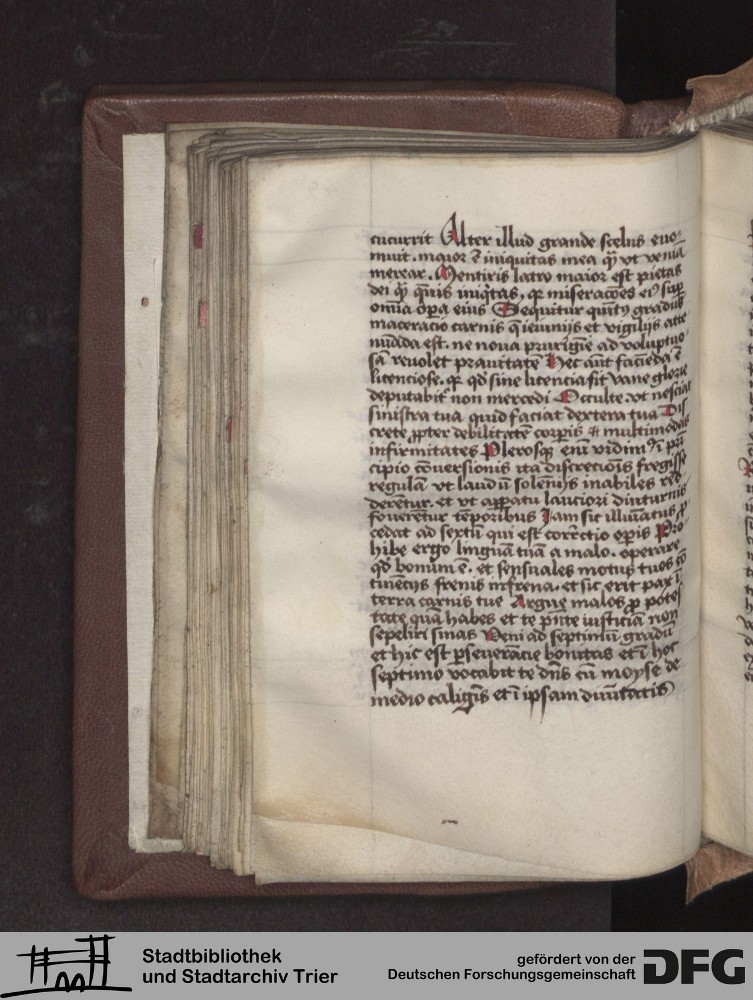 cucurrit Alter illud grande scelus euo-
muit. maior ē iniquitas mea qͣ̄ vt veniā
merear. Mentiris latro maior est pietas
dei qͣ̄ quis iniqͥtas, qꝛ miseracōes eiꝰ suꝑ
omīa oꝑa eius Sequitur quītꝰ gradus
maceracio carnis q̄ ieiunijs et vigilijs atte
nuāda est. ne noua prurigīe ad voluptuo
sā reuolet prauitatē Hec aūt faciēda ē
licenciose. qꝛ qd̄ sine licencia fit vane glorie
deputabiť non mercedi Occulte. vt nesciat
sinistra tua quid faciat dextera tua Dis
crete ꝓpter debilitatē corꝑis & multimodas
infirmitates Plerosqꝫ enī vidimꝰ ī pri
cipio cōuersionis ita discrecōis fregisse
regulā vt laudū solēnijs inabiles red
derētur. et vt apꝑatu lauciori diuturnis
fouerētur tēporibus Iam sic illuīatus ꝓ
cedat ad sextū qui est correctio oꝑis Pro
hibe ergo linguā tuā a malo. operare
qd̄ bonum ē. et sensuales motus tuos cō
tinēcijs frenis infrena. et sic erit pax ī
terra carnis tue Argue malos ꝓ potes
tate quā habes et te p̄nte iusticiā non
sepeliri sinas Veni ad septimū gradū
et hic est ꝑseuerācie bonitas et ī hoc
septimo vocabit te dn̄s cū moyse de
medio caligīs et ī ipsam diuītatis
Stadtbibliothek
und Stadtarchiv Trier
gefördert von der
Deutschen Forschungsgemeinschaft
DFG